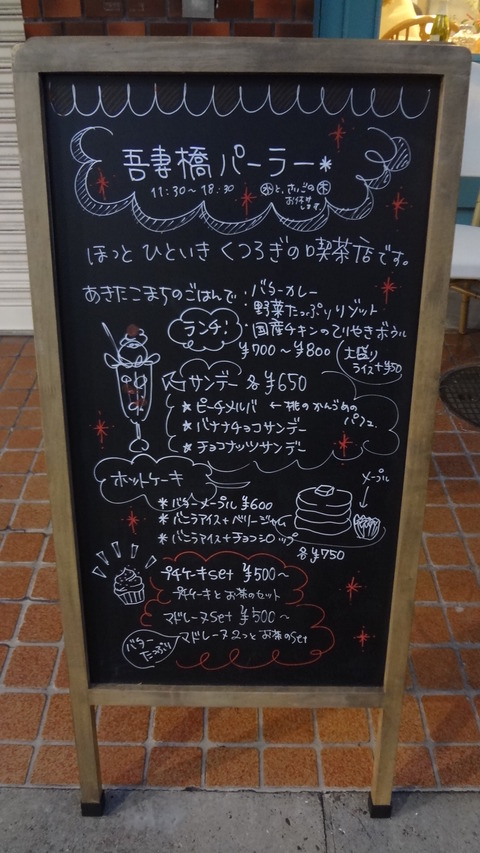 吾妻橋パーラー*
11:30~18:30 ㊌と、さいごの㊍
お休み
します。
ほっと ひといき くつろぎの喫茶店です。
あきたこまちのごはんで!
ランチ!
バターカレー
野菜たっぷりリゾット
国産チキンのてりやきボウル
¥700~¥800
大盛り
ライス+¥50
サンデー 各¥650
★ピーチメルバ ←桃のかんづめの
パフェ
★バナナチョコサンデー
★チョコナッツサンデー
ホットケーキ
メープル
*バターメープル ¥600
*バニラアイス+ベリージャム
*バニラアイス+チョコシロップ
各¥750
プチケーキset ¥500~
プチケーキとお茶のセット
マドレーヌset ¥500~
マドレーヌ2つとお茶のset
バター
たっぷり